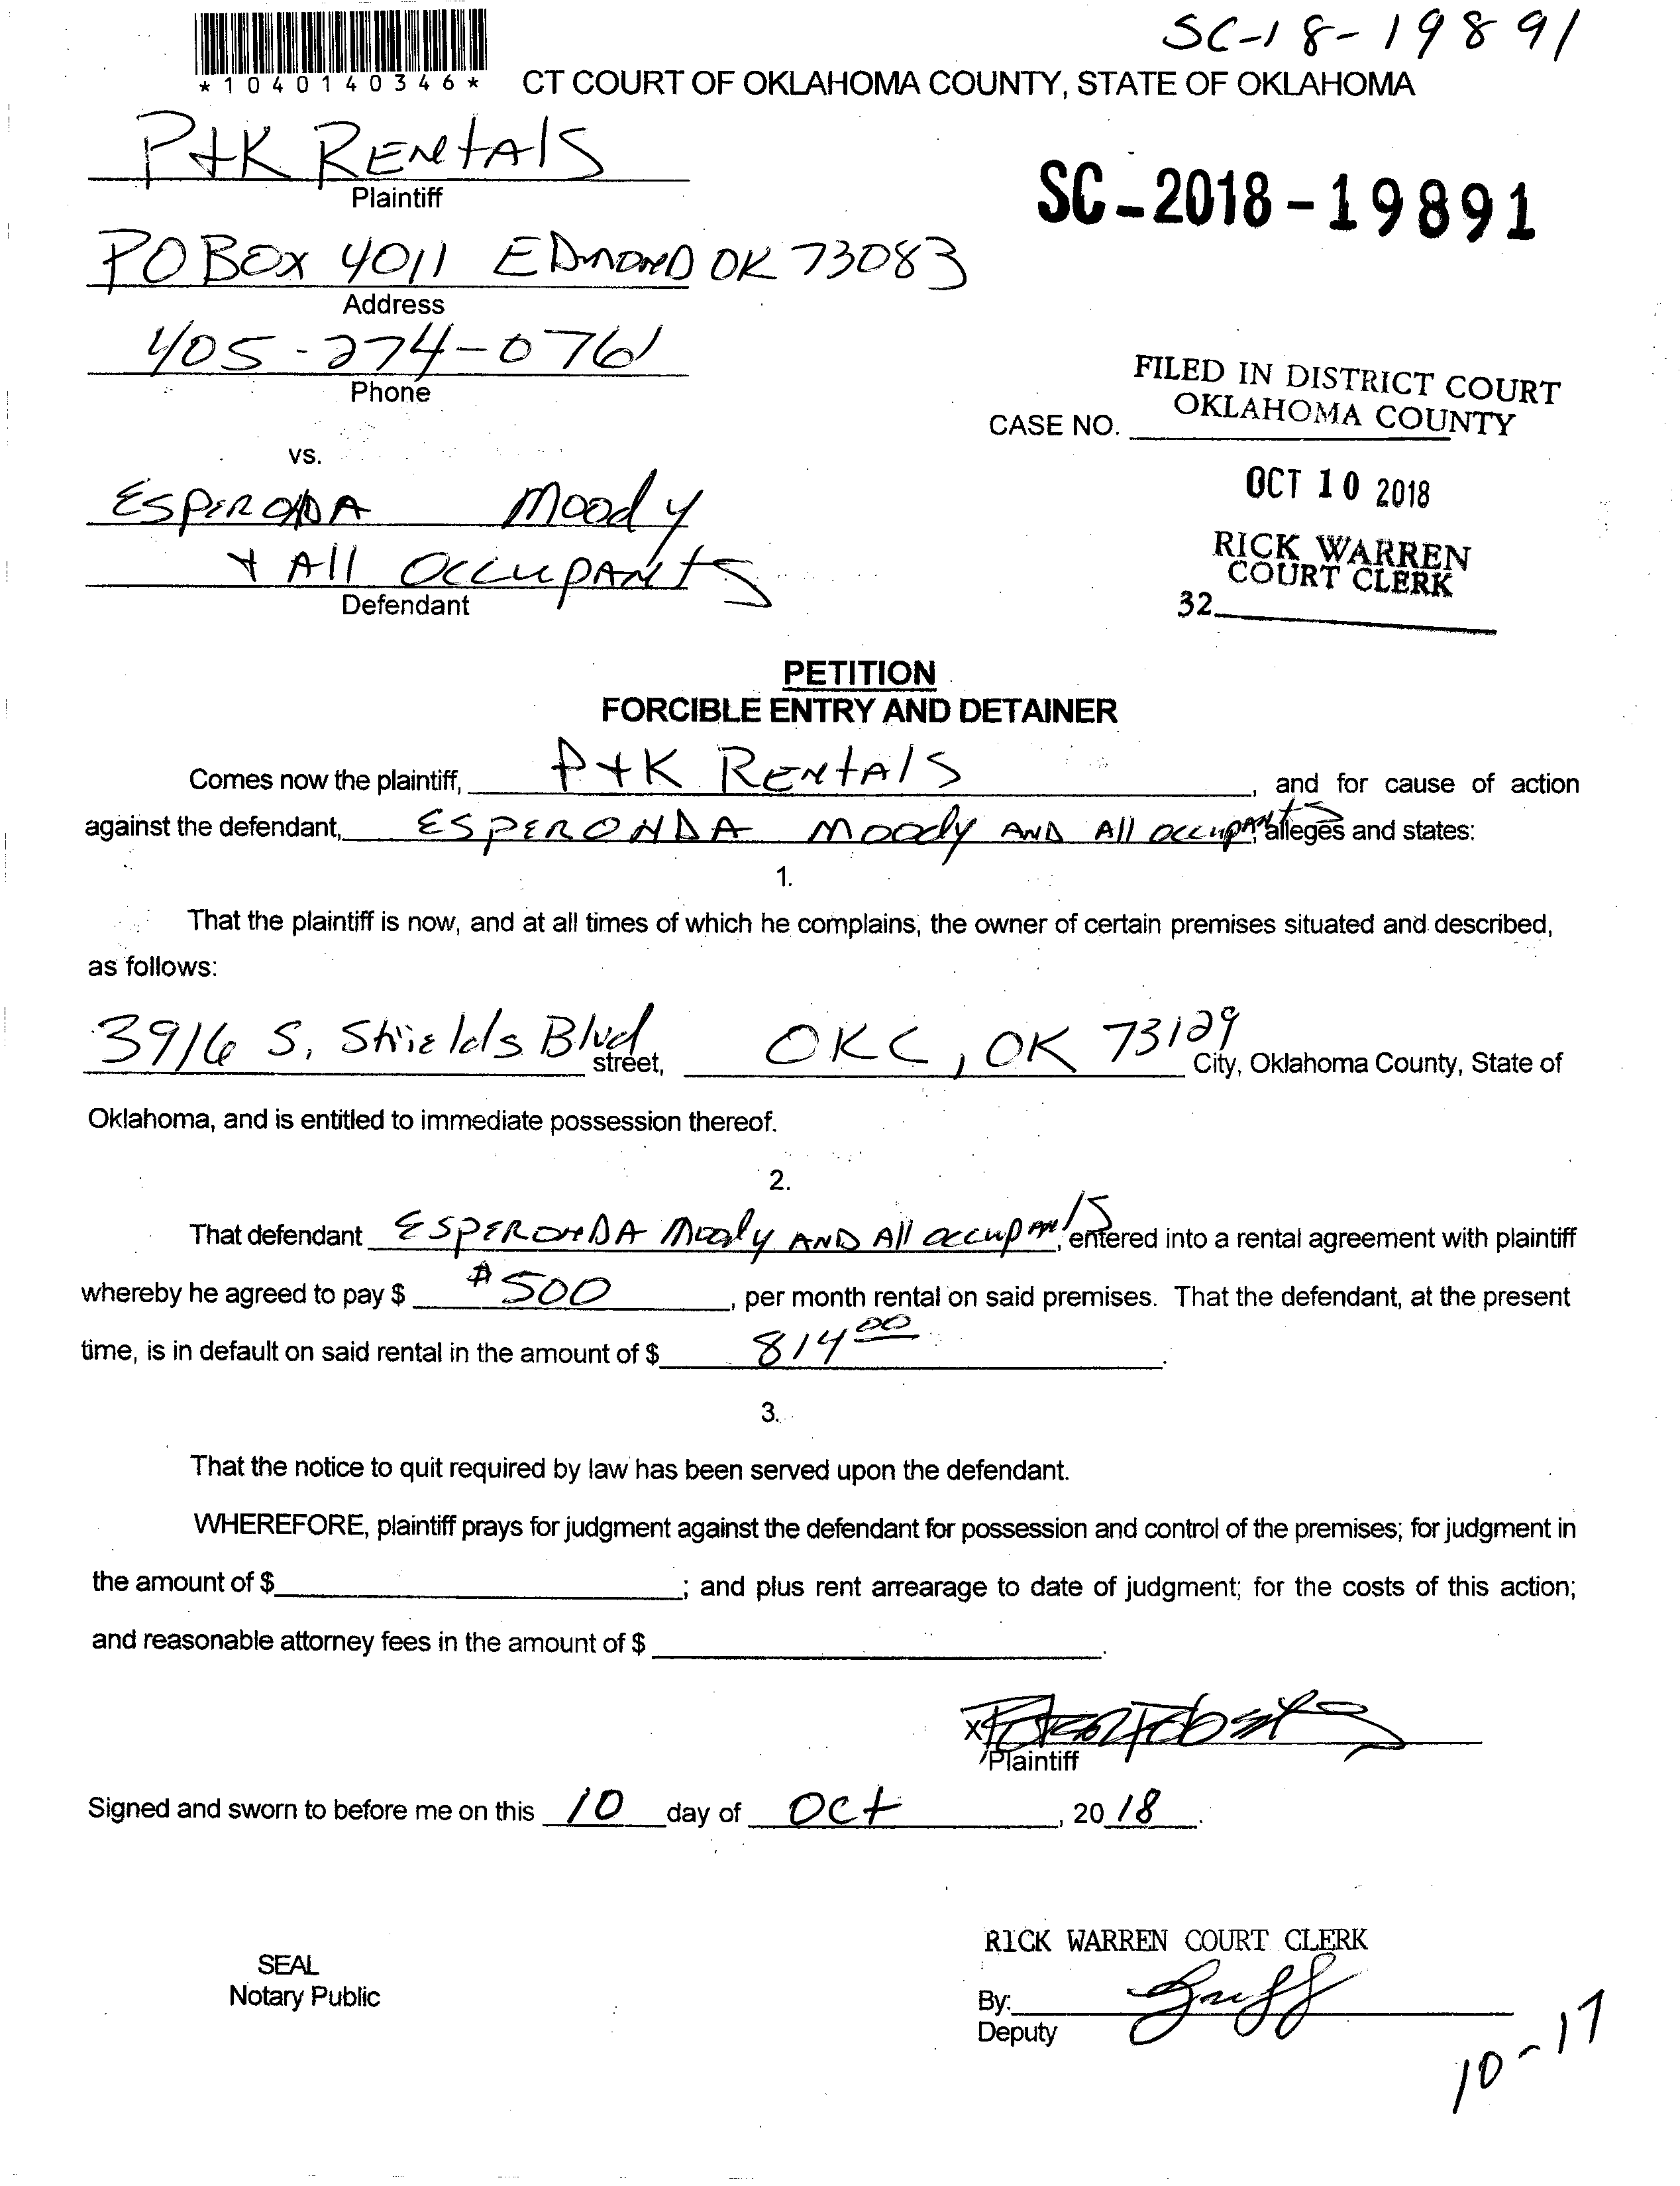 SC-18-19891
*1040140346*
CT COURT OF OKLAHOMA COUNTY, STATE OF OKLAHOMA
P+K RENtAlS
Plaintiff
SC-2018-19891
PO BOX 4011 EDMOND OK 73083
Address
405-274-0761
Phone
FILED IN DISTRICT COURT
OKLAHOMA COUNTY
CASE NO.
vs.
OCT 10 2018
ESPERONDA Moody
RICK WARREN
COURT CLERK
+ All OccupANtS
Defendant
32
PETITION
FORCIBLE ENTRY AND DETAINER
Comes now the plaintiff, P+K RENtAlS, and for cause of action
against the defendant, ESPERONDA Moody AND All occupANtS, alleges and states:
1.
That the plaintiff is now, and at all times of which he complains, the owner of certain premises situated and described,
as follows:
3916 S. Shields Blvd street, OKC, OK 73129 City, Oklahoma County, State of
Oklahoma, and is entitled to immediate possession thereof.
2.
That defendant ESPERONDA Moody AND All occupANtS, entered into a rental agreement with plaintiff
whereby he agreed to pay $ $500, per month rental on said premises. That the defendant, at the present
time, is in default on said rental in the amount of $ 814 00.
3.
That the notice to quit required by law has been served upon the defendant.
WHEREFORE, plaintiff prays for judgment against the defendant for possession and control of the premises; for judgment in
the amount of $ ; and plus rent arrearage to date of judgment; for the costs of this action;
and reasonable attorney fees in the amount of $ .
X
Plaintiff
Signed and sworn to before me on this 10 day of Oct, 2018.
RICK WARREN COURT CLERK
SEAL
Notary Public
By:
Deputy
10-17